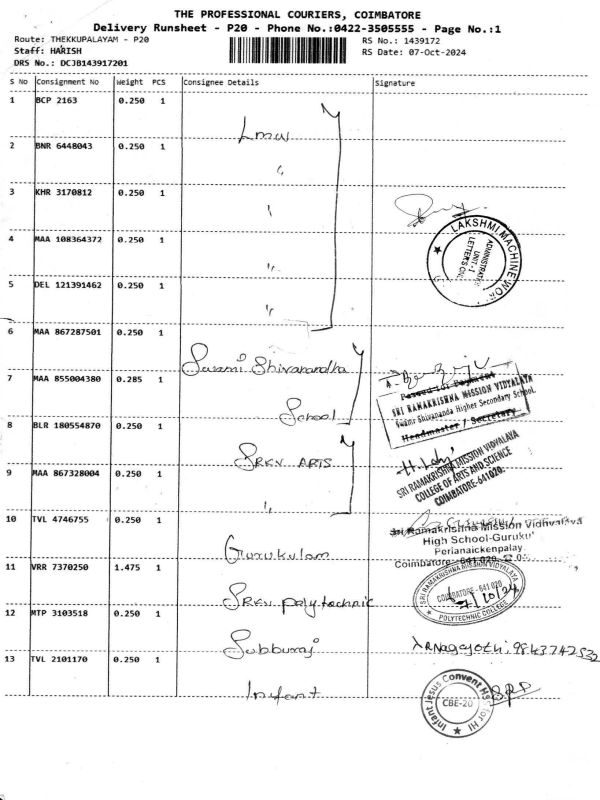 THE PROFESSIONAL COURIERS, COIMBATORE
Delivery Runsheet - P20 - Phone No.:0422-3505555 - Page No.:1
Route: THEKKUPALAYAM - P20
RS No.: 1439172
Staff: HARISH
RS Date: 07-Oct-2024
DRS No.: DCJB143917201
S No Consignment No Weight PCS Consignee Details Signature
1 BCP 2163 0.250 1
Lmw
2 BNR 6448043 0.250 1
3 KHR 3170812 0.250 1
4 MAA 108364372 0.250 1
LAKSHMI MACHINE WOR
ADMINISTRATI
UNIT-I
LETTERS ONL
5 DEL 121391462 0.250 1
6 MAA 867287501 0.250 1
Swami Shivanandha
7 MAA 855004380 0.285 1
School
Passed for Payment
SRI RAMAKRISHNA MISSION VIDYALAYA
Swami Shivananda Higher Secondary School.
Headmaster / Secretary
8 BLR 180554870 0.250 1
SRKV ARTS
9 MAA 867328004 0.250 1
SRI RAMAKRISHNA MISSION VIDYALAYA
COLLEGE OF ARTS AND SCIENCE
COIMBATORE-641020.
10 TVL 4746755 0.250 1
Gurukulam
Sri Ramakrishna Mission Vidhyalaya
High School-Gurukul
Perianaickenpalay
Coimbatore- 641 020
11 VRR 7370250 1.475 1
SRKV polytechnic
SRI RAMAKRISHNA MISSION VIDYALAYA
COIMBATORE - 641 020
7/10/24
POLYTECHNIC COLLEGE
12 MTP 3103518 0.250 1
Subburaj
13 TVL 2101170 0.250 1
Infant
Infant Jesus Convent
CBE-20